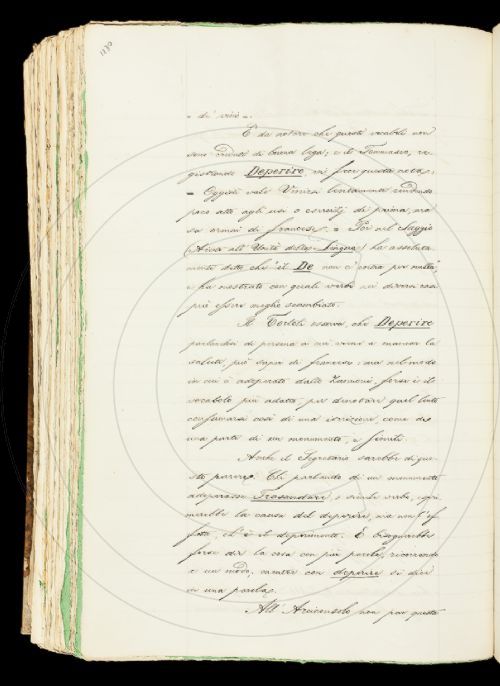 1130
È da notare che questi vocaboli non
sono creduti di buona lega; e il Tommaseo, re-
gistrando Deperire, vi fece questa nota:
= Oggidì vale Venire lentamente
poco atto agli usi o di prima, ma
sa ormai di francese. = Poi nel Saggio
(Aiuto all'Unità della Lingua) ha assoluta-
mente detto che il De non ci entra per nulla,
e ha mostrato con quali verbi nei diversi casi
può essere meglio scambiato.
Il Tortoli osserva, che Deperire
parlandosi di persona a cui venir a mancar la
salute, può sapere di francese; ma nel modo
in cui è adoperato dallo Zannoni, forse è il
vocabolo più adatto per denotare quel lento
consumarsi così di una iscrizione, come di
una parte di un monumento, e simili.
Anche il Segretario sarebbe di que-
sto parere. Chi parlando di un monumento
adoperasse Trasandare, e simili verbi, espri-
merebbe la causa del deperire, ma non l'ef-
fetto, ch'è il deperimento. E bisognerebbe
forse dir la cosa con più parole, ricorrendo
a un modo, mentre con deperire si dice
in una parola.
All'Arciconsolo non par questo